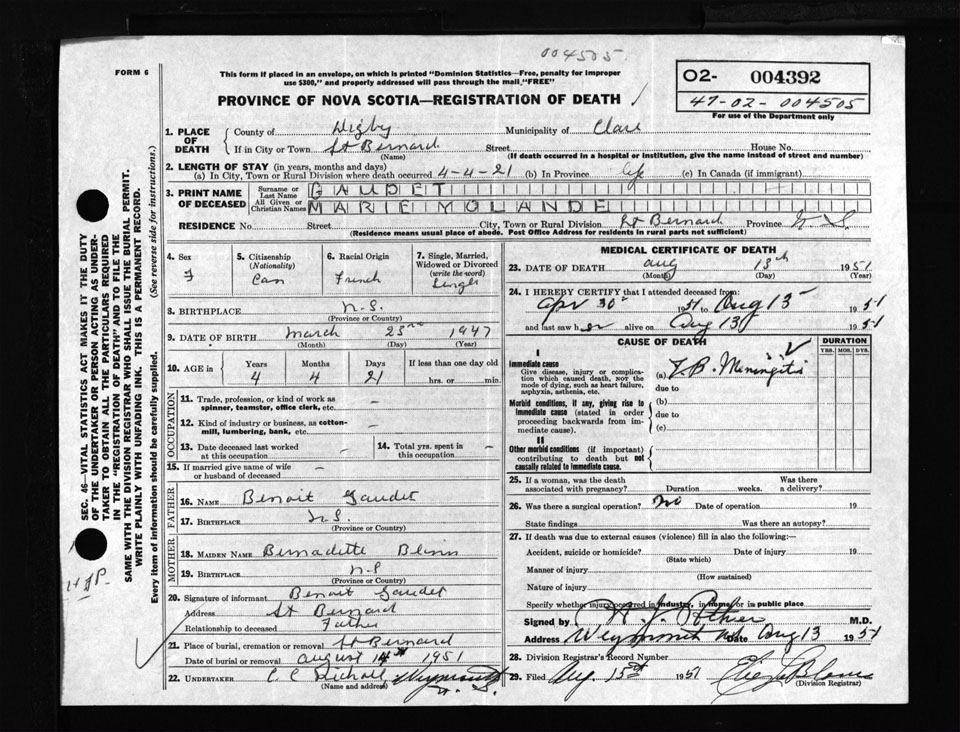 004505
FORM 6
This form if placed in an envelope, on which is printed "Dominion Statistics—Free, penalty for improper
use $300," and properly addressed will pass through the mail "FREE"
O2- 004392
47-02-004505
For use of the Department only
PROVINCE OF NOVA SCOTIA—REGISTRATION OF DEATH
1. PLACE OF DEATH County of Digby Municipality of Clare
If in City or Town St Bernard Street House No.
(Name) (If death occurred in a hospital or institution, give the name instead of street and number)
2. LENGTH OF STAY (in years, months and days)
(a) In City, Town or Rural Division where death occurred 4-4-21 (b) In Province life (c) In Canada (if immigrant)
3. PRINT NAME OF DECEASED Surname or Last Name GAUDET
All Given or Christian Names MARIE YOLANDE
RESIDENCE No. Street City, Town or Rural Division St Bernard Province N.S.
(Residence means usual place of abode. Post Office Address for residents in rural parts not sufficient)
4. Sex F
5. Citizenship (Nationality) Can
6. Racial Origin French
7. Single, Married, Widowed or Divorced (write the word) Single
8. BIRTHPLACE N.S.
(Province or Country)
9. DATE OF BIRTH March 23rd 1947
(Month) (Day) (Year)
10. AGE in Years Months Days If less than one day old
4 4 21 hrs. or min.
OCCUPATION
11. Trade, profession, or kind of work as
spinner, teamster, office clerk, etc. –
12. Kind of industry or business, as cotton-
mill, lumbering, bank, etc. –
13. Date deceased last worked
at this occupation –
14. Total yrs. spent in
this occupation –
15. If married give name of wife
or husband of deceased –
FATHER
16. NAME Benoit Gaudet
17. BIRTHPLACE N.S.
(Province or Country)
MOTHER
18. MAIDEN NAME Bernadette Blinn
19. BIRTHPLACE N.S
(Province or Country)
20. Signature of informant Benoit Gaudet
Address St Bernard
Relationship to deceased Father
21. Place of burial, cremation or removal St Bernard
Date of burial or removal August 14th 1951
22. UNDERTAKER C C Nichols Weymouth
(Name and address) N. S.
MEDICAL CERTIFICATE OF DEATH
23. DATE OF DEATH Aug 13th 1951
(Month) (Day) (Year)
24. I HEREBY CERTIFY that I attended deceased from:
Apr 30 1951 to Aug 13 1951
and last saw her alive on Aug 13 1951
CAUSE OF DEATH DURATION
YRS. MOS. DYS.
I
Immediate cause
Give disease, injury or compli-
cation which caused death, NOT the
mode of dying, such as heart failure,
asphyxia, asthenia, etc.
(a) T.B. Meningitis
due to
Morbid conditions, if any, giving rise to
immediate cause (stated in order
proceeding backwards from im-
mediate cause).
(b)
due to
(c)
II
Other morbid conditions (if important)
contributing to death but not
causally related to immediate cause.
25. If a woman, was the death
associated with pregnancy? Duration weeks. Was there
a delivery?
26. Was there a surgical operation? No Date of operation 19
State findings Was there an autopsy?
27. If death was due to external causes (violence) fill in also the following:—
Accident, suicide or homicide? Date of injury 19
(State which)
Manner of injury
(How sustained)
Nature of injury
Specify whether injury occurred in industry, in home, or in public place
Signed by H. J. Pothier M.D.
Address Weymouth N.S. Date Aug 13 1951
28. Division Registrar's Record Number
29. Filed Aug 15th 1951
(Division Registrar)
SEC. 46—VITAL STATISTICS ACT MAKES IT THE DUTY
OF THE UNDERTAKER OR PERSON ACTING AS UNDER-
TAKER TO OBTAIN ALL THE PARTICULARS REQUIRED
IN THE "REGISTRATION OF DEATH" AND TO FILE THE
SAME WITH THE DIVISION REGISTRAR WHO SHALL ISSUE THE BURIAL PERMIT.
WRITE PLAINLY WITH UNFADING INK. THIS IS A PERMANENT RECORD.
Every item of information should be carefully supplied. (See reverse side for instructions.)